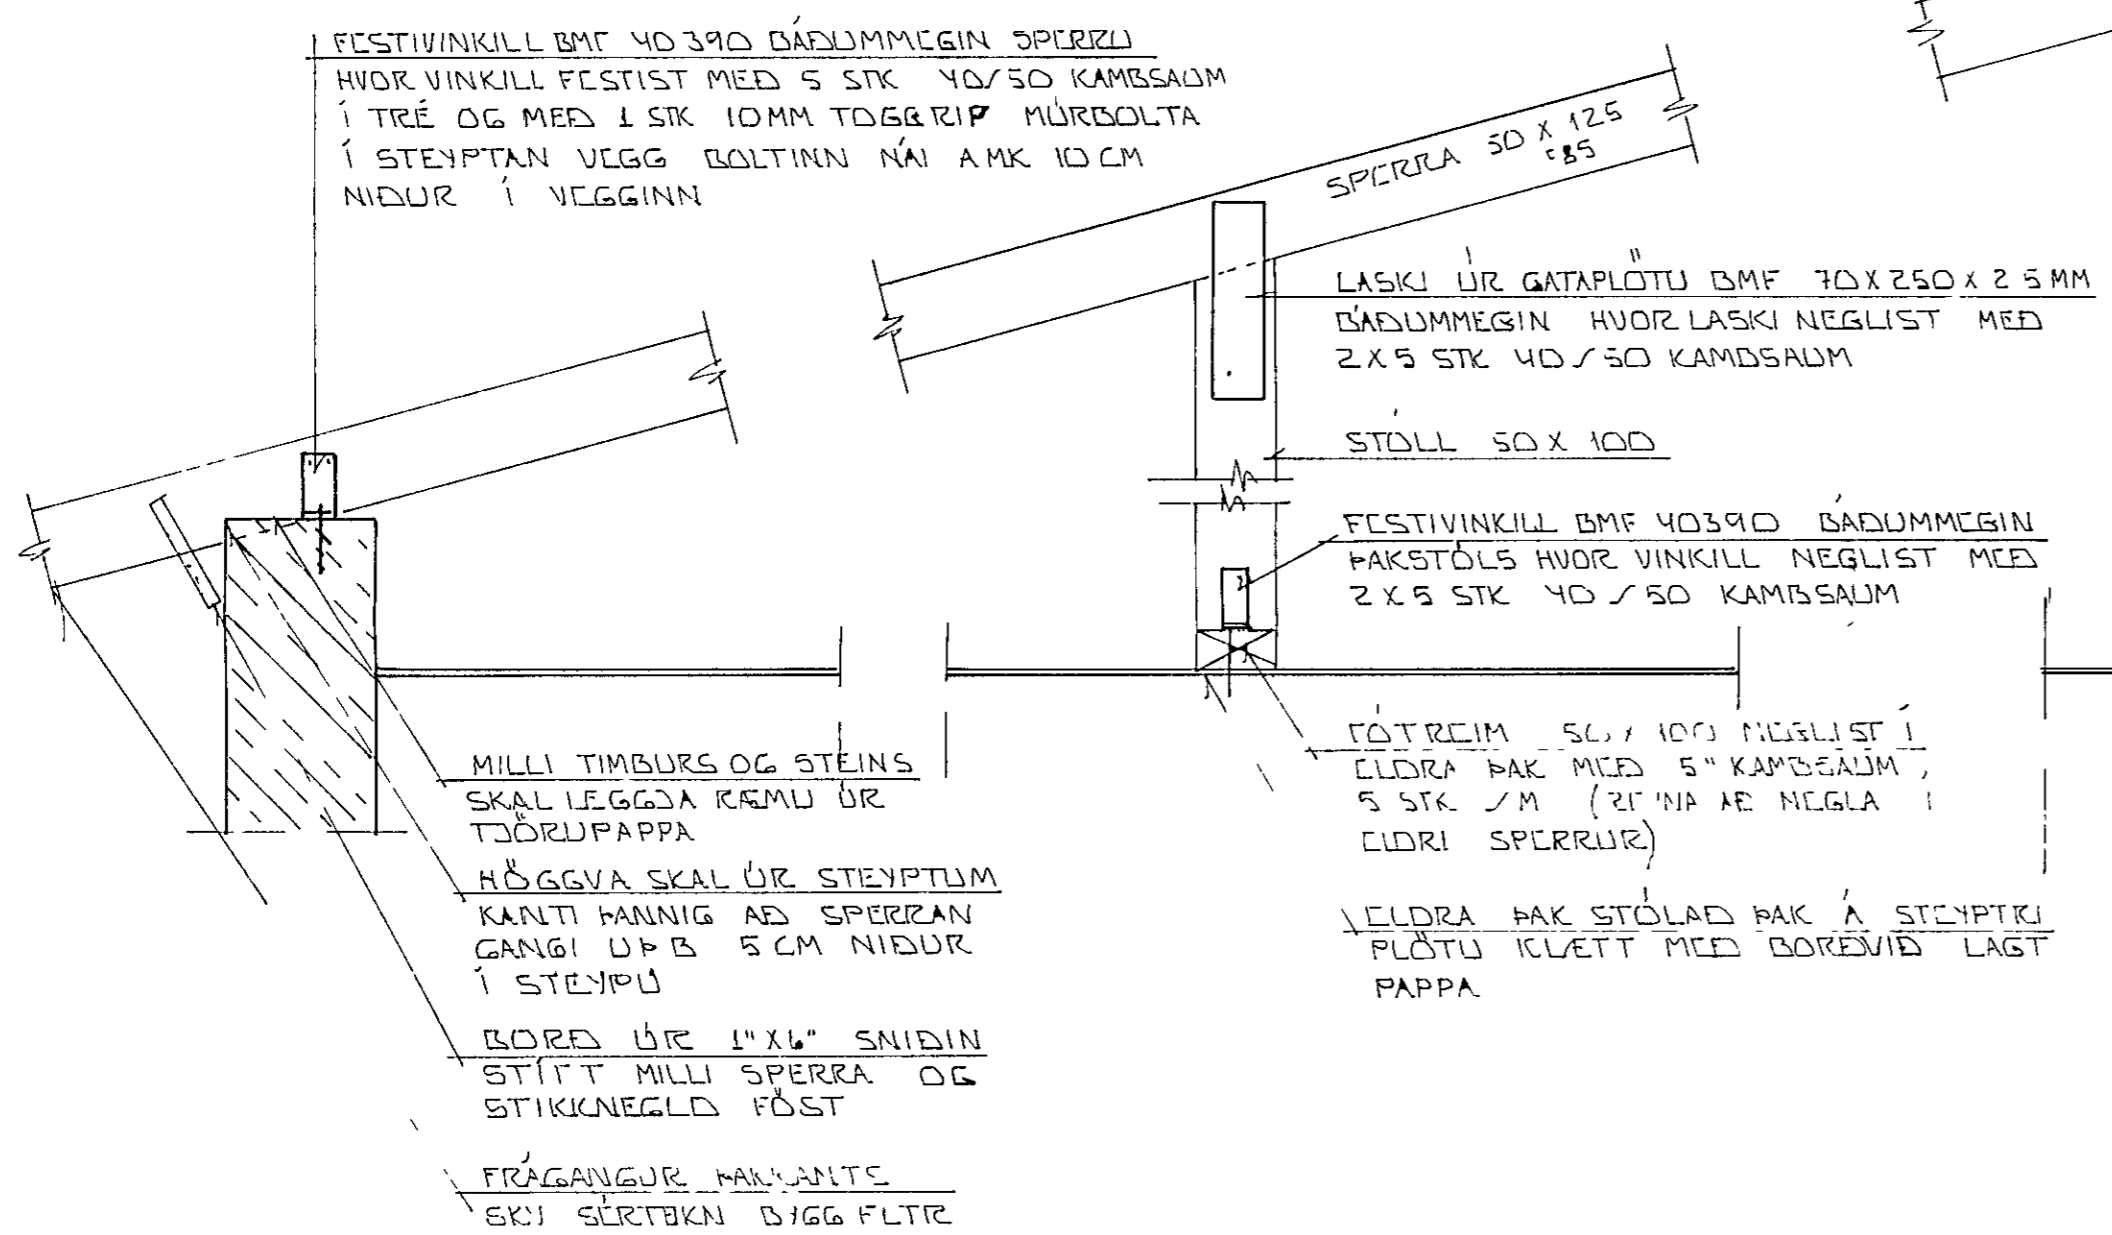 FESTIVINKILL BMF 40390 BÁÐUMMEGIN SPERRU
HVOR VINKILL FESTIST MEÐ 5 STK 40/50 KAMBSAUM
Í TRÉ OG MEÐ 1 STK 10MM TOGGRIP MÚRBOLTA
Í STEYPTAN VEGG BOLTINN NÁI AMK 10 CM
NIÐUR Í VEGGINN
SPERRA 50 X 125
LASKI ÚR GATAPLÖTU BMF 70 X 250 X 2 5 MM
BÁÐUMMEGIN HVOR LASKI NEGLIST MEÐ
2 X 5 STK 40/50 KAMBSAUM
STÓLL 50 X 100
FESTIVINKILL BMF 40390 BÁÐUMMEGIN
ÞAKSTÓLS HVOR VINKILL NEGLIST MEÐ
2 X 5 STK 40/50 KAMBSAUM
FÓTREIM 50 X 100 NEGLIST Í
ELDRA ÞAK MEÐ 5" KAMBSAUM
5 STK /M (REYNA AÐ NEGLA Í
ELDRI SPERRUR)
ELDRA ÞAK STÓLAÐ ÞAK Á STEYPTRI
PLÖTU KLÆTT MEÐ BORÐVIÐ LAGT
PAPPA
MILLI TIMBURS OG STEINS
SKAL LEGGJA RÆMU ÚR
TJÖRUPAPPA
HÖGGVA SKAL ÚR STEYPTUM
KANTI ÞANNIG AÐ SPERRAN
GANGI UÞB 5 CM NIÐUR
Í STEYPU
BORÐ ÚR 1"X6" SNIÐIN
STÍFT MILLI SPERRA OG
STIKKNEGLD FÖST
FRÁGANGUR ÞAKKANTS
SKV SÉRTEIKN BYGG FLTR